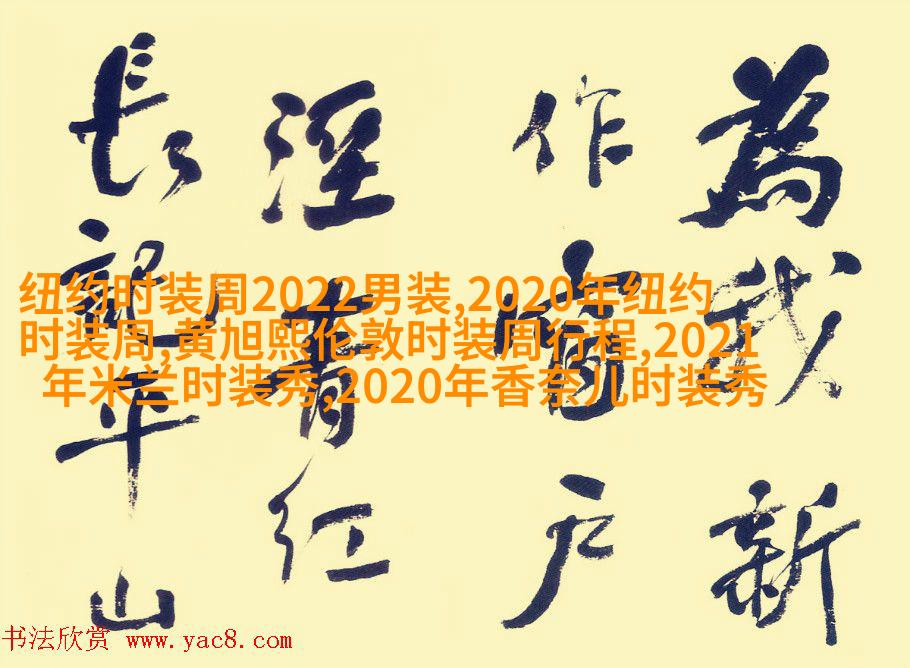 為我新
作窗户
溼青红
長記平山
纽约时装周2022男装,2020年纽约
时装周,黄旭熙伦敦时装周行程,2021
年米兰时装秀,2020年香奈儿时装秀
书法欣赏 www.yac8.com